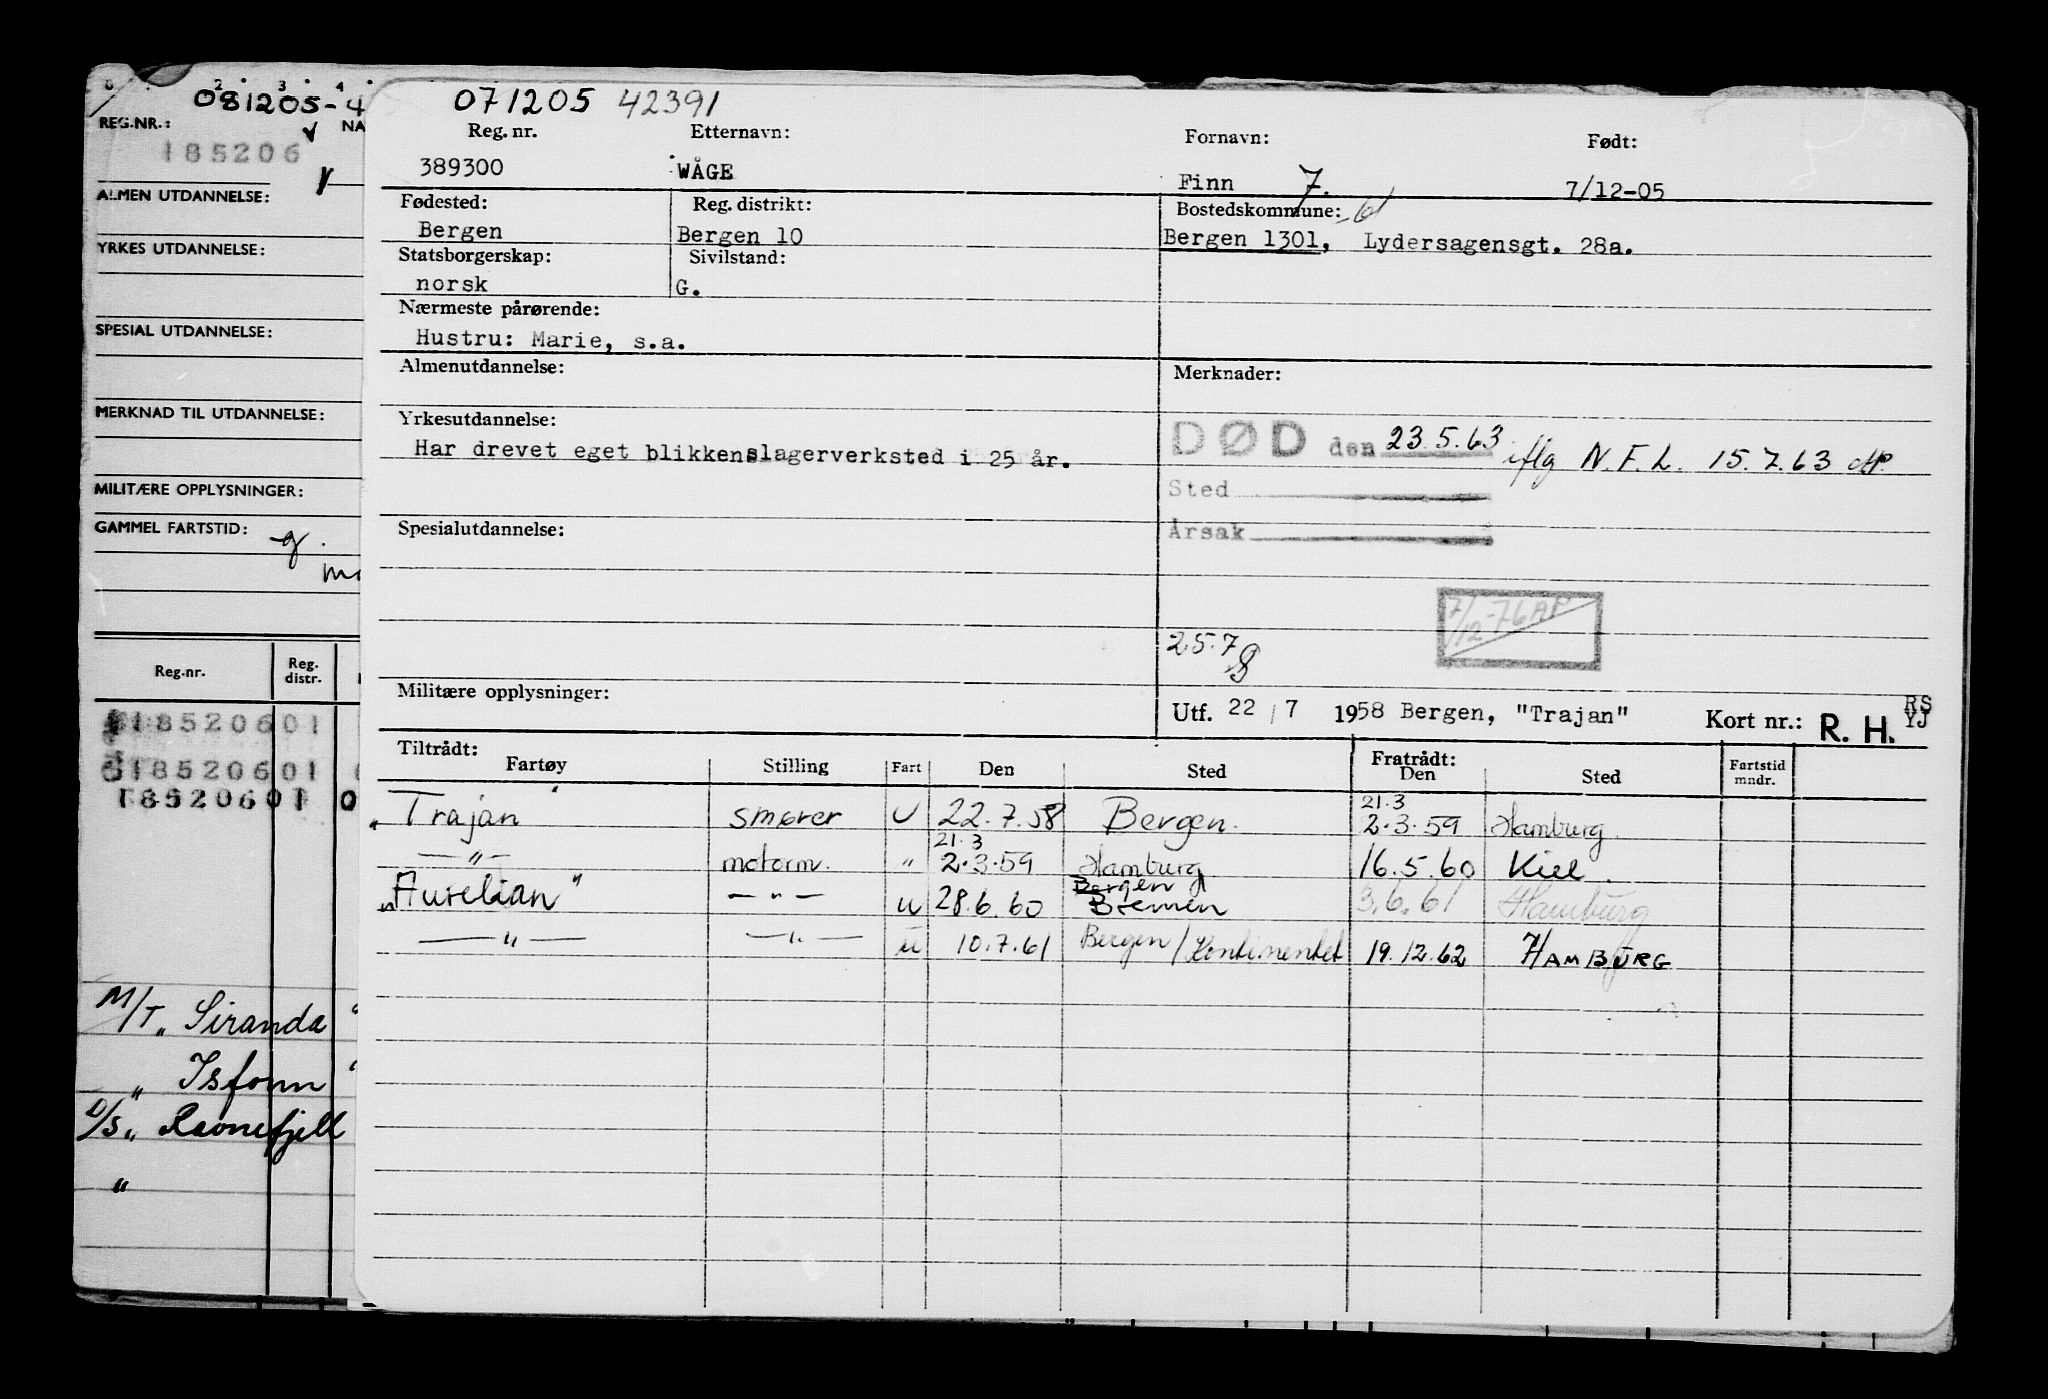 081205-4
REG.NR.:
NA
185206
ALMEN UTDANNELSE:
YRKES UTDANNELSE:
SPESIAL UTDANNELSE:
MERKNAD TIL UTDANNELSE:
MILITÆRE OPPLYSNINGER:
GAMMEL FARTSTID:
Reg.nr. Reg. distr.
18520601
18520601
18520601 0
M/T „Siranda"
„ Isfonn "
D/S „ Ravnefjell
"
071205 42391
Reg. nr. Etternavn: Fornavn: Født:
389300 WÅGE Finn 7. 7/12-05
Fødested: Reg. distrikt: Bostedskommune: -61
Bergen Bergen 10 Bergen 1301, Lydersagensgt. 28a.
Statsborgerskap: Sivilstand:
norsk G.
Nærmeste pårørende:
Hustru: Marie, s.a.
Almenutdannelse: Merknader:
Yrkesutdannelse:
Har drevet eget blikkenslagerverksted i 25 år.
DØD den 23.5.63 iflg N.F.L. 15.7.63
Sted
Årsak
Spesialutdannelse:
7/12-76 AP
25.7
Militære opplysninger:
Utf. 22/7 1958 Bergen, "Trajan" Kort nr.: R. H. RS YJ
Tiltrådt: Fratrådt:
Fartøy Stilling Fart Den Sted Den Sted Fartstid mndr.
„Trajan" smører U 22.7.58 Bergen. 21.3 2.3.59 Hamburg.
—"— motorm. " 21.3 2.3.59 Hamburg 16.5.60 Kiel.
„Aurelian" —"— u 28.6.60 Bergen Bremen 3.6.61 Hamburg
—"— —"— u 10.7.61 Bergen/Kontinentet 19.12.62 HAMBURG